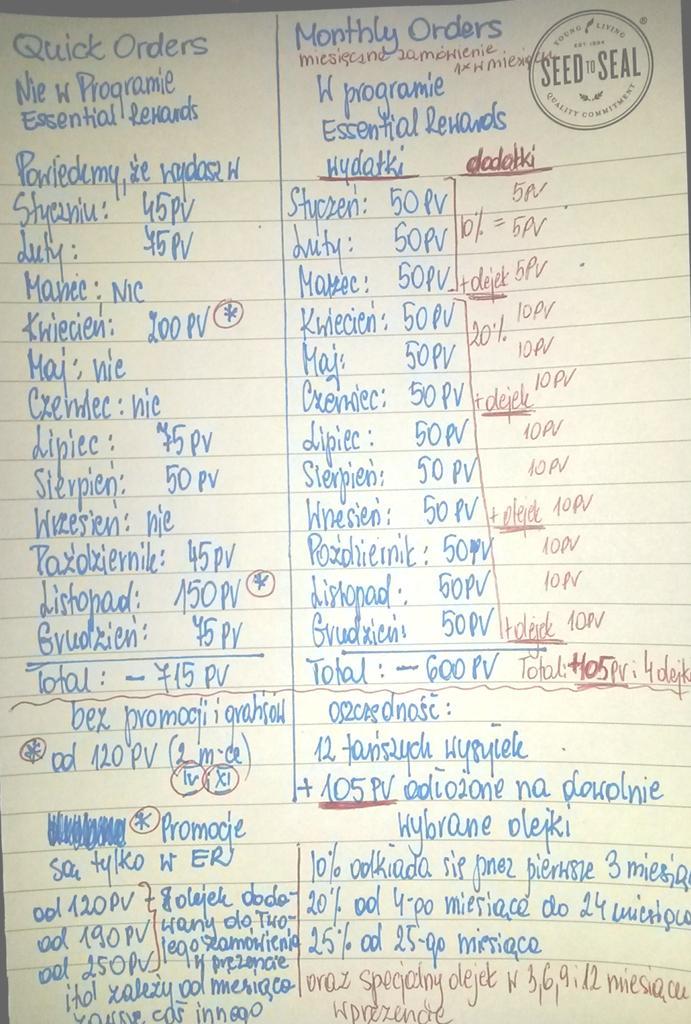 Quick Orders
Nie w Programie
Essential Rewards
Powiedzmy, że wydasz w
Styczniu: 45PV
Luty: 75PV
Marzec: NIC
Kwiecień: 200 PV *
Maj: nie
Czerwiec: nie
Lipiec: 75PV
Sierpień: 50 PV
Wrzesień: nie
Październik: 45PV
Listopad: 150PV *
Grudzień: 75PV
Total: - 715 PV
bez promocji i gratisów
* od 120 PV (2 m-ce)
IV XI
* Promocje
są tylko w ER
od 120PV
od 190PV
od 250PV
olejek doda-
wany do Two-
jego zamówienia
w prezencie
i to zależy od miesiąca
zawsze coś innego
Monthly Orders
miesięczne zamówienie
1x w miesiącu
W programie
Essential Rewards
wydatki dodatki
Styczeń: 50 PV 5PV
Luty: 50PV 10% = 5PV
Marzec: 50PV + olejek 5PV
Kwiecień: 50PV 20% 10PV
Maj: 50PV 10PV
Czerwiec: 50 PV + olejek 10PV
Lipiec: 50PV 10PV
Sierpień: 50 PV 10PV
Wrzesień: 50 PV + olejek 10PV
Październik: 50PV 10PV
Listopad: 50PV 10PV
Grudzień: 50PV + olejek 10PV
Total: - 600 PV Total: +105PV i 4 olejk
oszczędność:
12 tańszych wysyłek
+ 105 PV odłożone na dowolnie
wybrane olejki
10% odkłada się przez pierwsze 3 miesią
20% od 4-go miesiąca do 24 miesiąca
25% od 25-go miesiąca
oraz specjalny olejek w 3,6,9 i 12 miesiącu
w prezencie
YOUNG LIVING
EST. 1994
SEED TO SEAL
QUALITY COMMITMENT